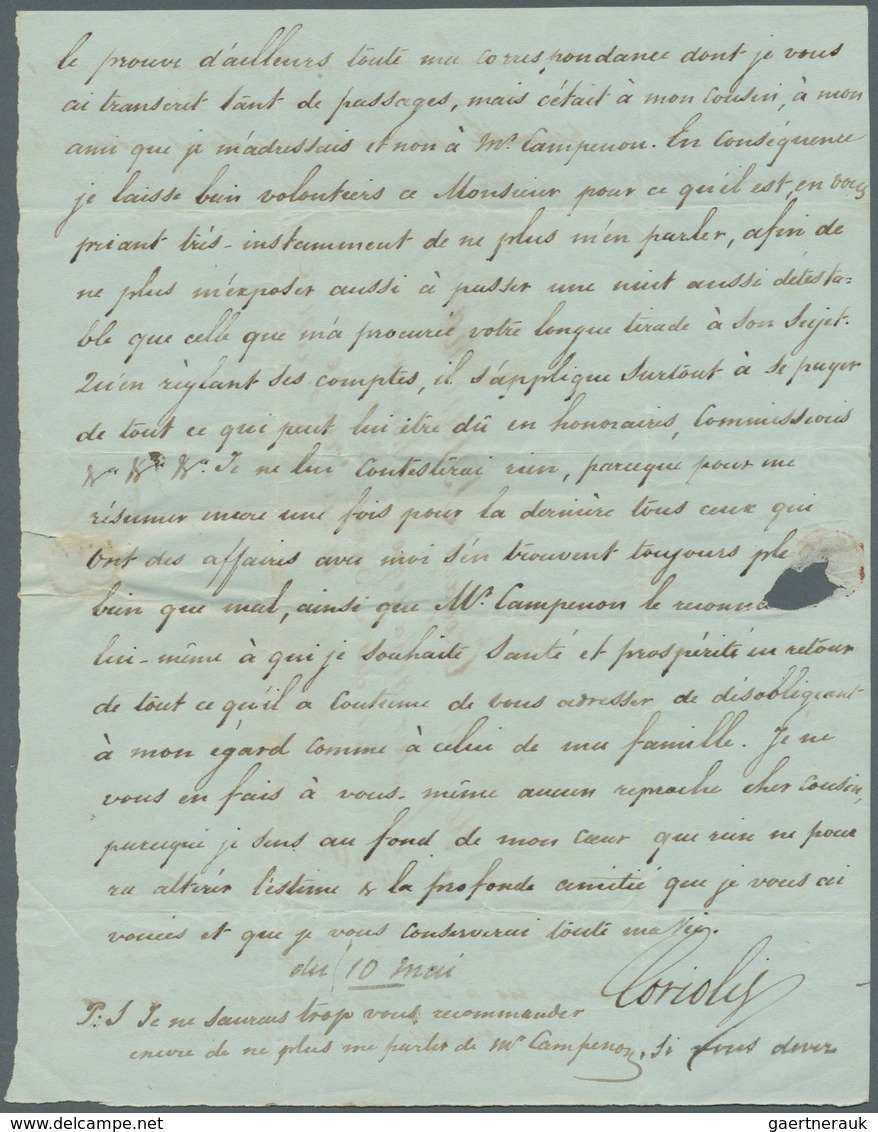 le prouve d'ailleurs toute ma correspondance dont je vous
ai transcret tant de passages, mais c'était à mon cousin, à mon
ami que je m'adressais et non à Mr. Campenon. En conséquence
je laisse bien volontiers ce Monsieur pour ce qu'il est, en vous
priant très-instamment de ne plus m'en parler, afin de
ne plus m'exposer aussi à passer une nuit aussi détesta-
ble que celle que m'a procurée votre longue tirade à son sujet.
Qu'en règlant ses comptes, il s'applique surtout à se payer
de tout ce qui peut lui être dû en honoraires, Commissions
&a &a &a. Je ne lui contesterai rien, parceque pour me
résumer encore une fois pour la dernière tous ceux qui
ont des affaires avec moi s'en trouvent toujours pl
bien que mal, ainsi que Mr. Campenon le reconna
lui-même à qui je souhaite santé et prospérité en retour
de tout ce qu'il a coutume de vous adresser de désobligeant
à mon égard comme à celui de ma famille. Je ne
vous en fais à vous-même aucun reproche cher cousin,
parceque je sens au fond de mon cœur que rien ne pour
ra altérer l'estime & la profonde amitié que je vous ai
vouées et que je vous conserverai toute ma vie.
du 10 mai
Coriolis
P:S Je ne saurais trop vous recommander
encore de ne plus me parler de Mr Campenon, si vous devez
gaertnerauk
delcampe.net